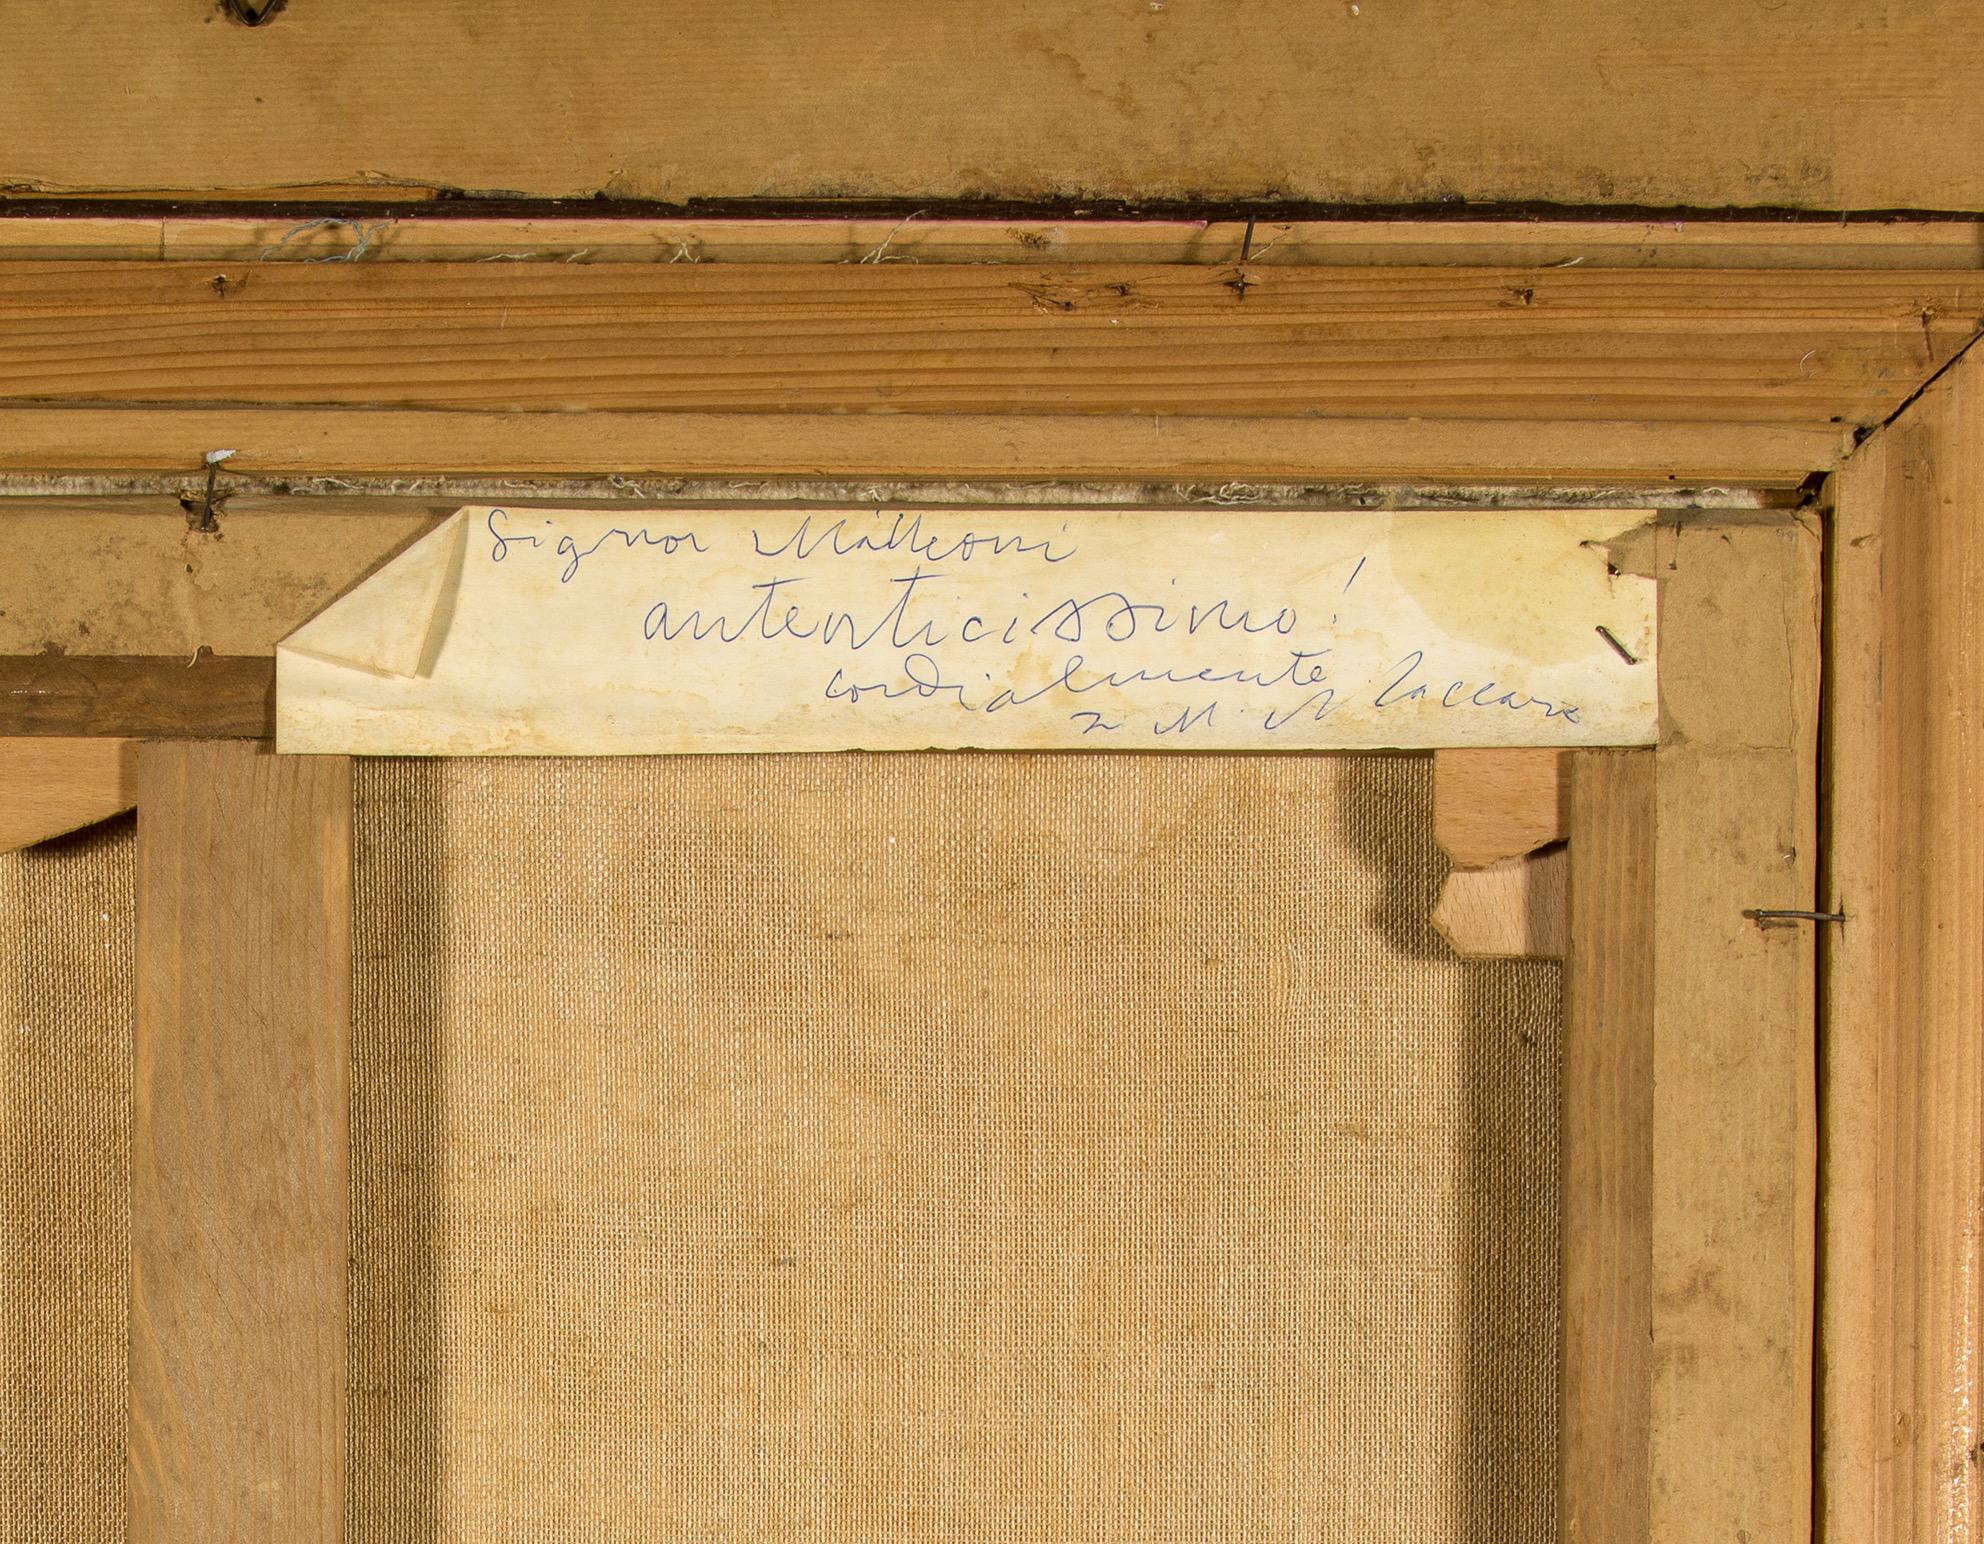 Signor Matteoni
autenticissimo!
cordialmente
M. N. Vaccaro